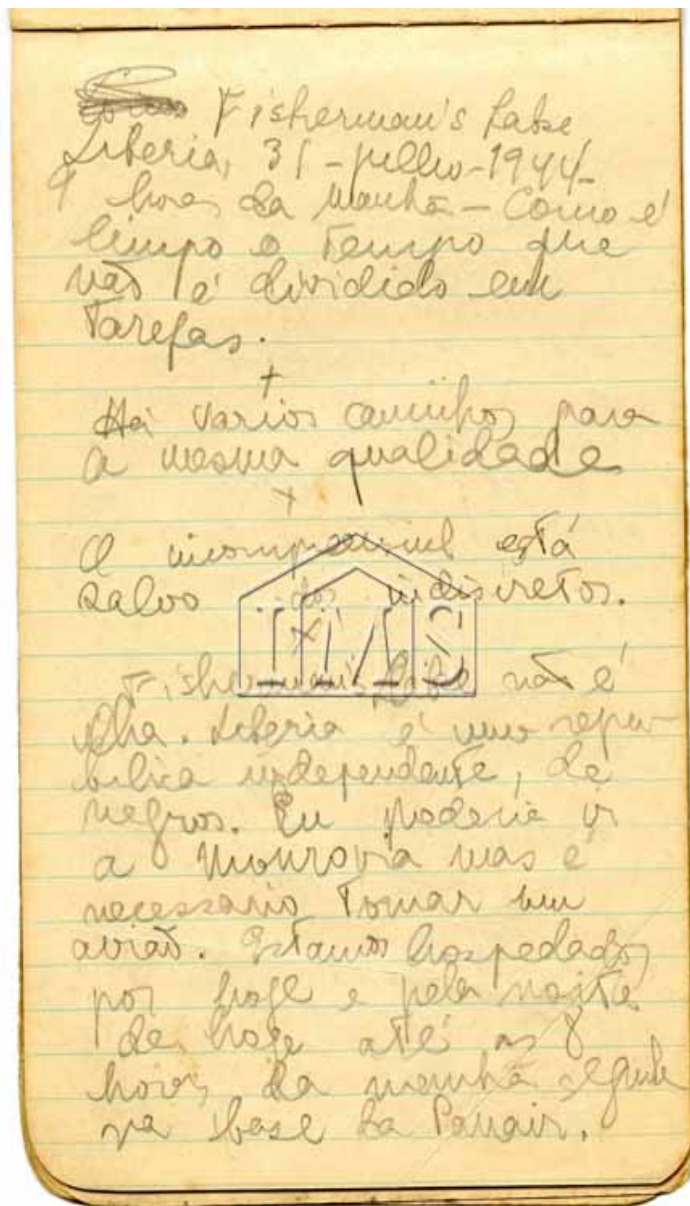 Fisherman's Lake
Liberia, 31-julho-1944-
9 horas da manhã - Como é
limpo o tempo que
não é dividido em
tarefas.
+
Há varios caminhos para
a mesma qualidade
+
O incompreensivel está
salvo dos indiscretos.
+
IMS
Fisherman's Lake não é
ilha. Liberia é uma repu-
blica independente, de
negros. Eu poderia ir
a Monrovia mas é
necessario tomar um
avião. Estamos hospedados
por hoje e pela noite
de hoje até as 8
horas da manhã seguinte
na base da Panair.